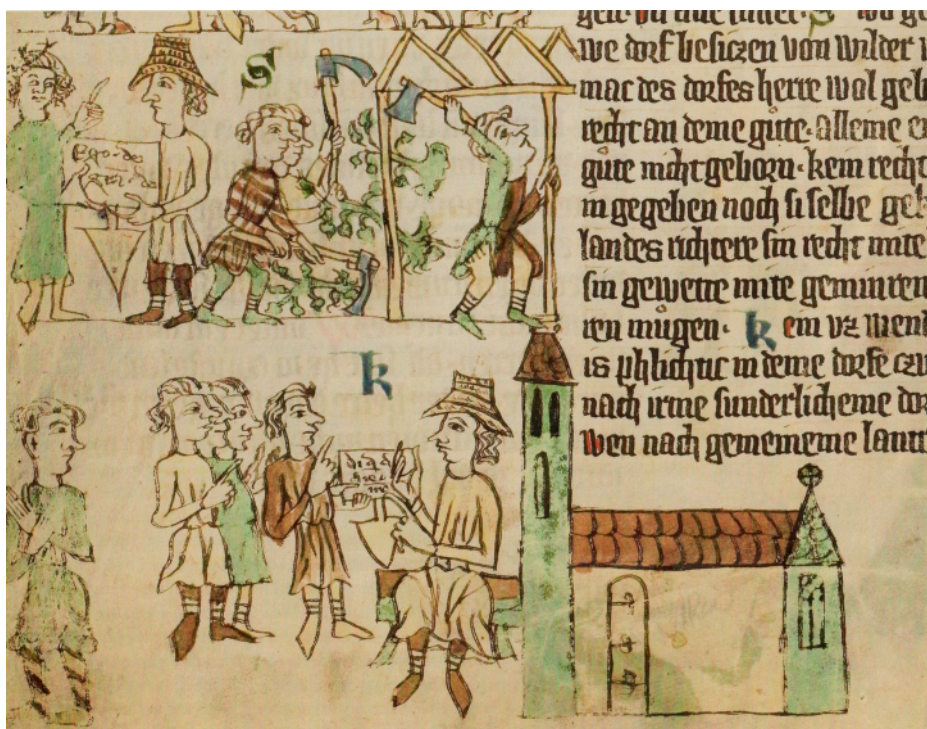 S
Ego de
k
we dorf besiczen von wilder
mac des dorfes herre wol
recht an deme gute. alleine
gute nicht geborn. kein recht
in gegeben noch si selbe
landes richtere sin recht mite
sin gewette mite geminren
ren mügen. kein vz
is phlichtic in deme dorfe
nach irme sunderlicheme
wen nach gemeineme